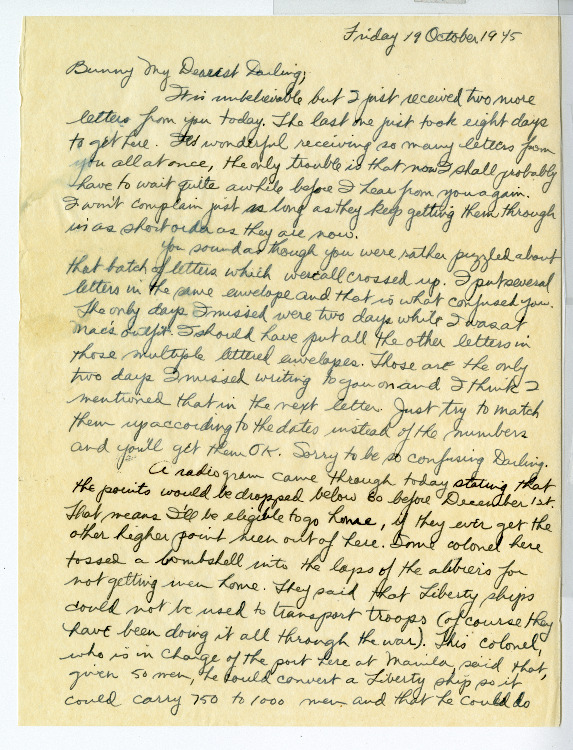 Friday 19 October 1945
Bunny My Dearest Darling;
It is unbelievable but I just received two more
letters from you today. The last one just took eight days
to get here. It's wonderful receiving so many letters from
you all at once, the only trouble is that now I shall probably
have to wait quite awhile before I hear from you again.
I won't complain just as long as they keep getting them through
in as short order as they are now.
You sound as though you were rather puzzled about
that batch of letters which were all crossed up. I put several
letters in the same envelope and that is what confused you.
The only days I missed were two days while I was at
Mac's outfit. I should have put all the other letters in
those multiple lettered envelopes. Those are the only
two days I missed writing to you on and I think I
mentioned that in the next letter. Just try to match
them up according to the dates instead of the numbers
and you'll get them OK. Sorry to be so confusing Darling.
A radiogram came through today stating that
the points would be dropped below 60 before December 1st.
That means I'll be eligible to go home, if they ever get the
other higher point men out of here. Some colonel here
tossed a bombshell into the laps of the alibiers for
not getting men home. They said that Liberty ships
could not be used to transport troops (of course they
have been doing it all through the war). This colonel,
who is in charge of the port here at Manila, said that,
given 50 men, he could convert a Liberty ship so it
could carry 750 to 1000 men and that he could do